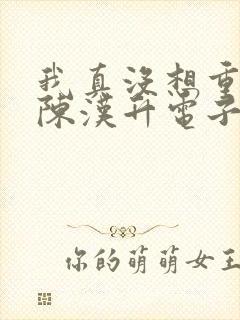 我真沒想重
陳漢升電子
你的萌萌女王